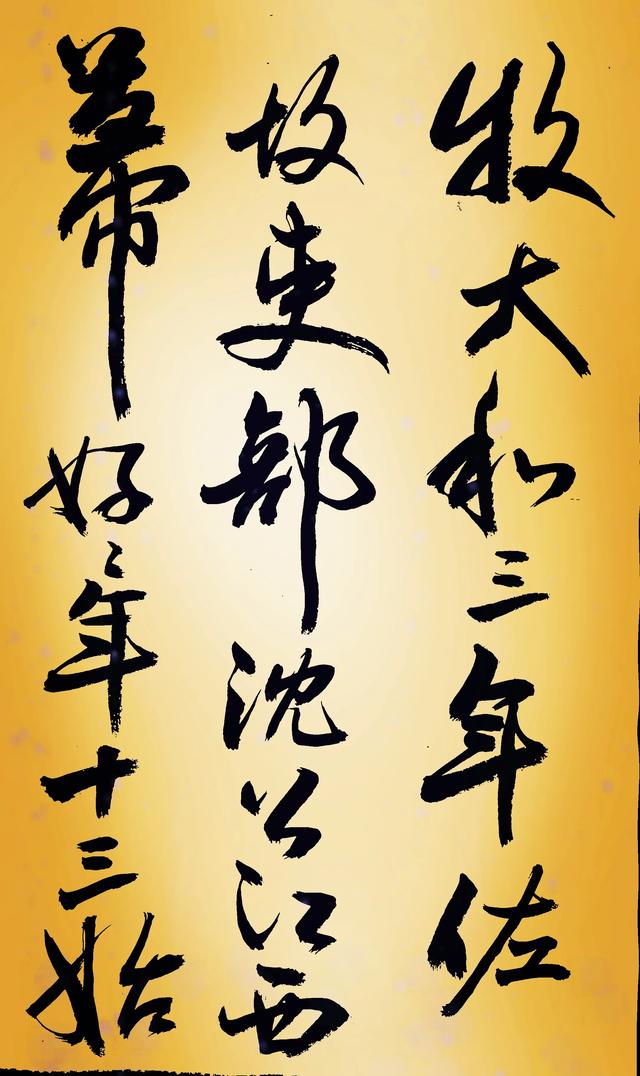 牧大和三年佐
故吏部沈公江西
幕好〻年十三始